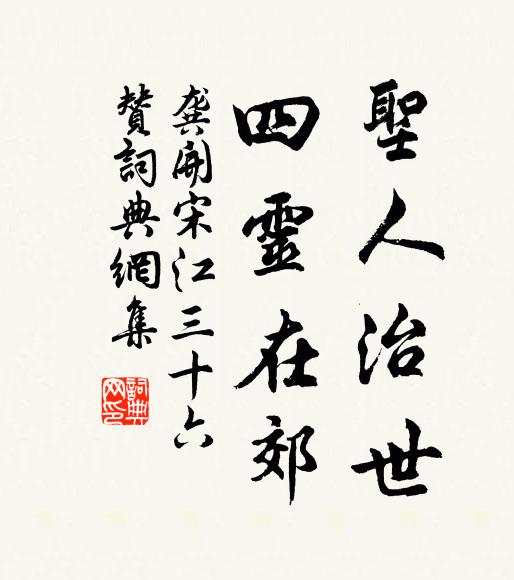 聖人治世
四靈在郊
龔開宋江三十六
贊詞典網集
詞典網印